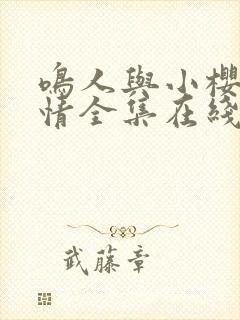 鳴人與小櫻
情全集在綫
武藤章